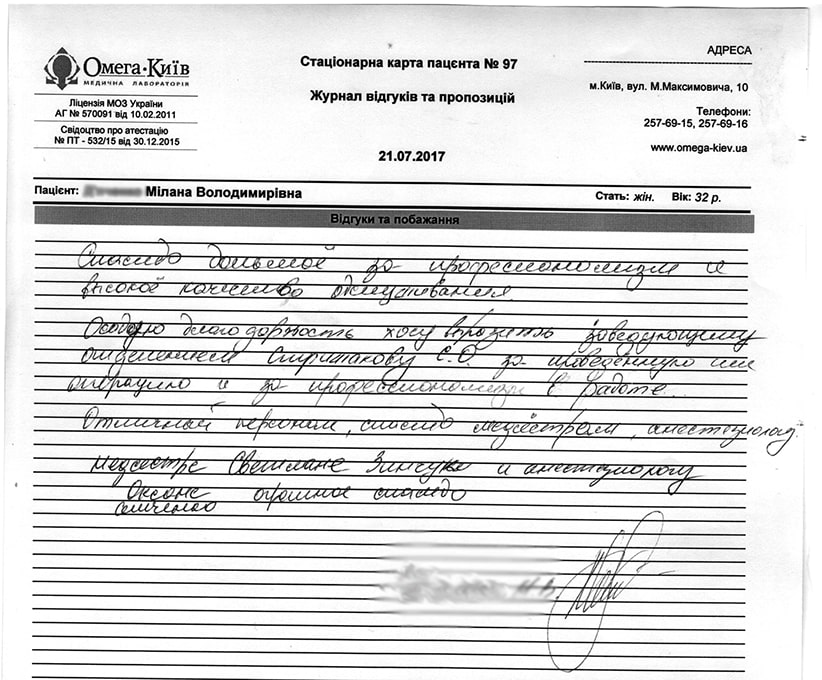 Омега·Київ
МЕДИЧНА ЛАБОРАТОРІЯ
Ліцензія МОЗ України
АГ № 570091 від 10.02.2011
Свідоцтво про атестацію
№ ПТ - 532/15 від 30.12.2015
Стаціонарна карта пацєнта № 97
Журнал відгуків та пропозицій
21.07.2017
АДРЕСА
м.Київ, вул. М.Максимовича, 10
Телефони:
257-69-15, 257-69-16
www.omega-kiev.ua
Пацієнт: Мілана Володимирівна Стать: жін. Вік: 32 р.
Відгуки та побажання
Спасибо большое за профессионализм и
высокое качество обслуживания
Особую благодарность хочу выразить заведующему
отделением С.О. за проведенную мне
операцию и за профессионализм в работе.
Отличный персонал, спасибо медсестрам, анестезиологу.
Медсестре Светлане и анестезиологу
Оксане огромное спасибо